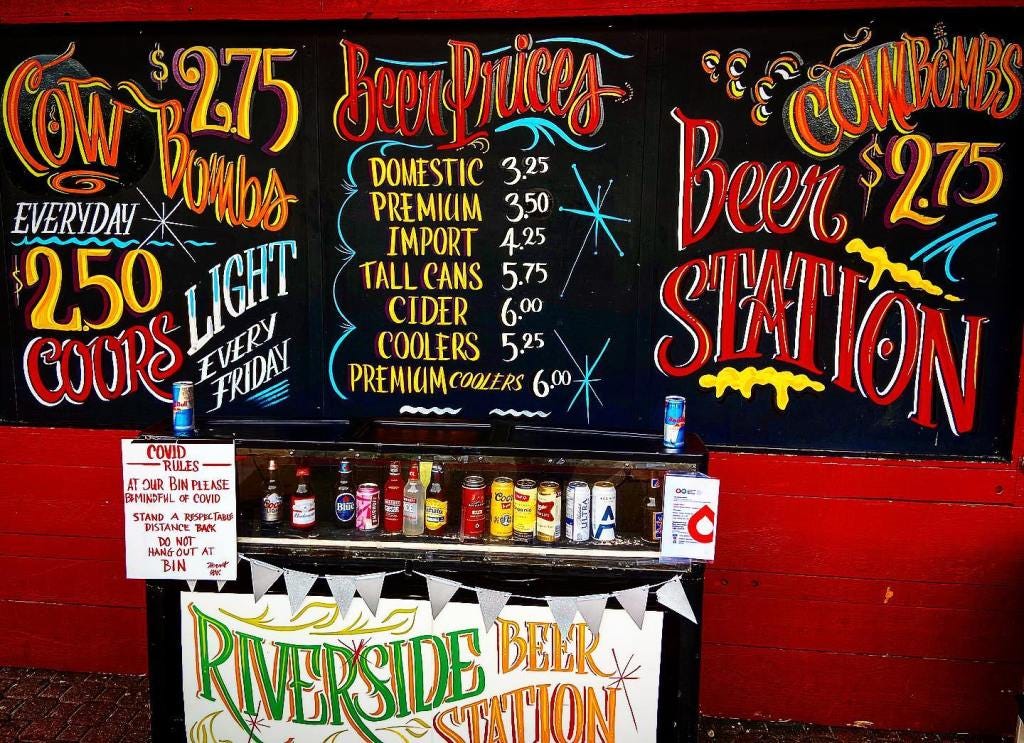 COW
BOMBS
$2.75
EVERYDAY
$2.50
COORS
LIGHT
EVERY
FRIDAY
Beer Prices
DOMESTIC 3.25
PREMIUM 3.50
IMPORT 4.25
TALL CANS 5.75
CIDER 6.00
COOLERS 5.25
PREMIUM COOLERS 6.00
COWBOMBS
$2.75
Beer
STATION
COVID
RULES
AT OUR BIN PLEASE
BE MINDFUL OF COVID
STAND A RESPECTABLE
DISTANCE BACK
DO NOT
HANG OUT AT
BIN
Blue
Coors
ULTRA
A
RIVERSIDE
BEER
STATION